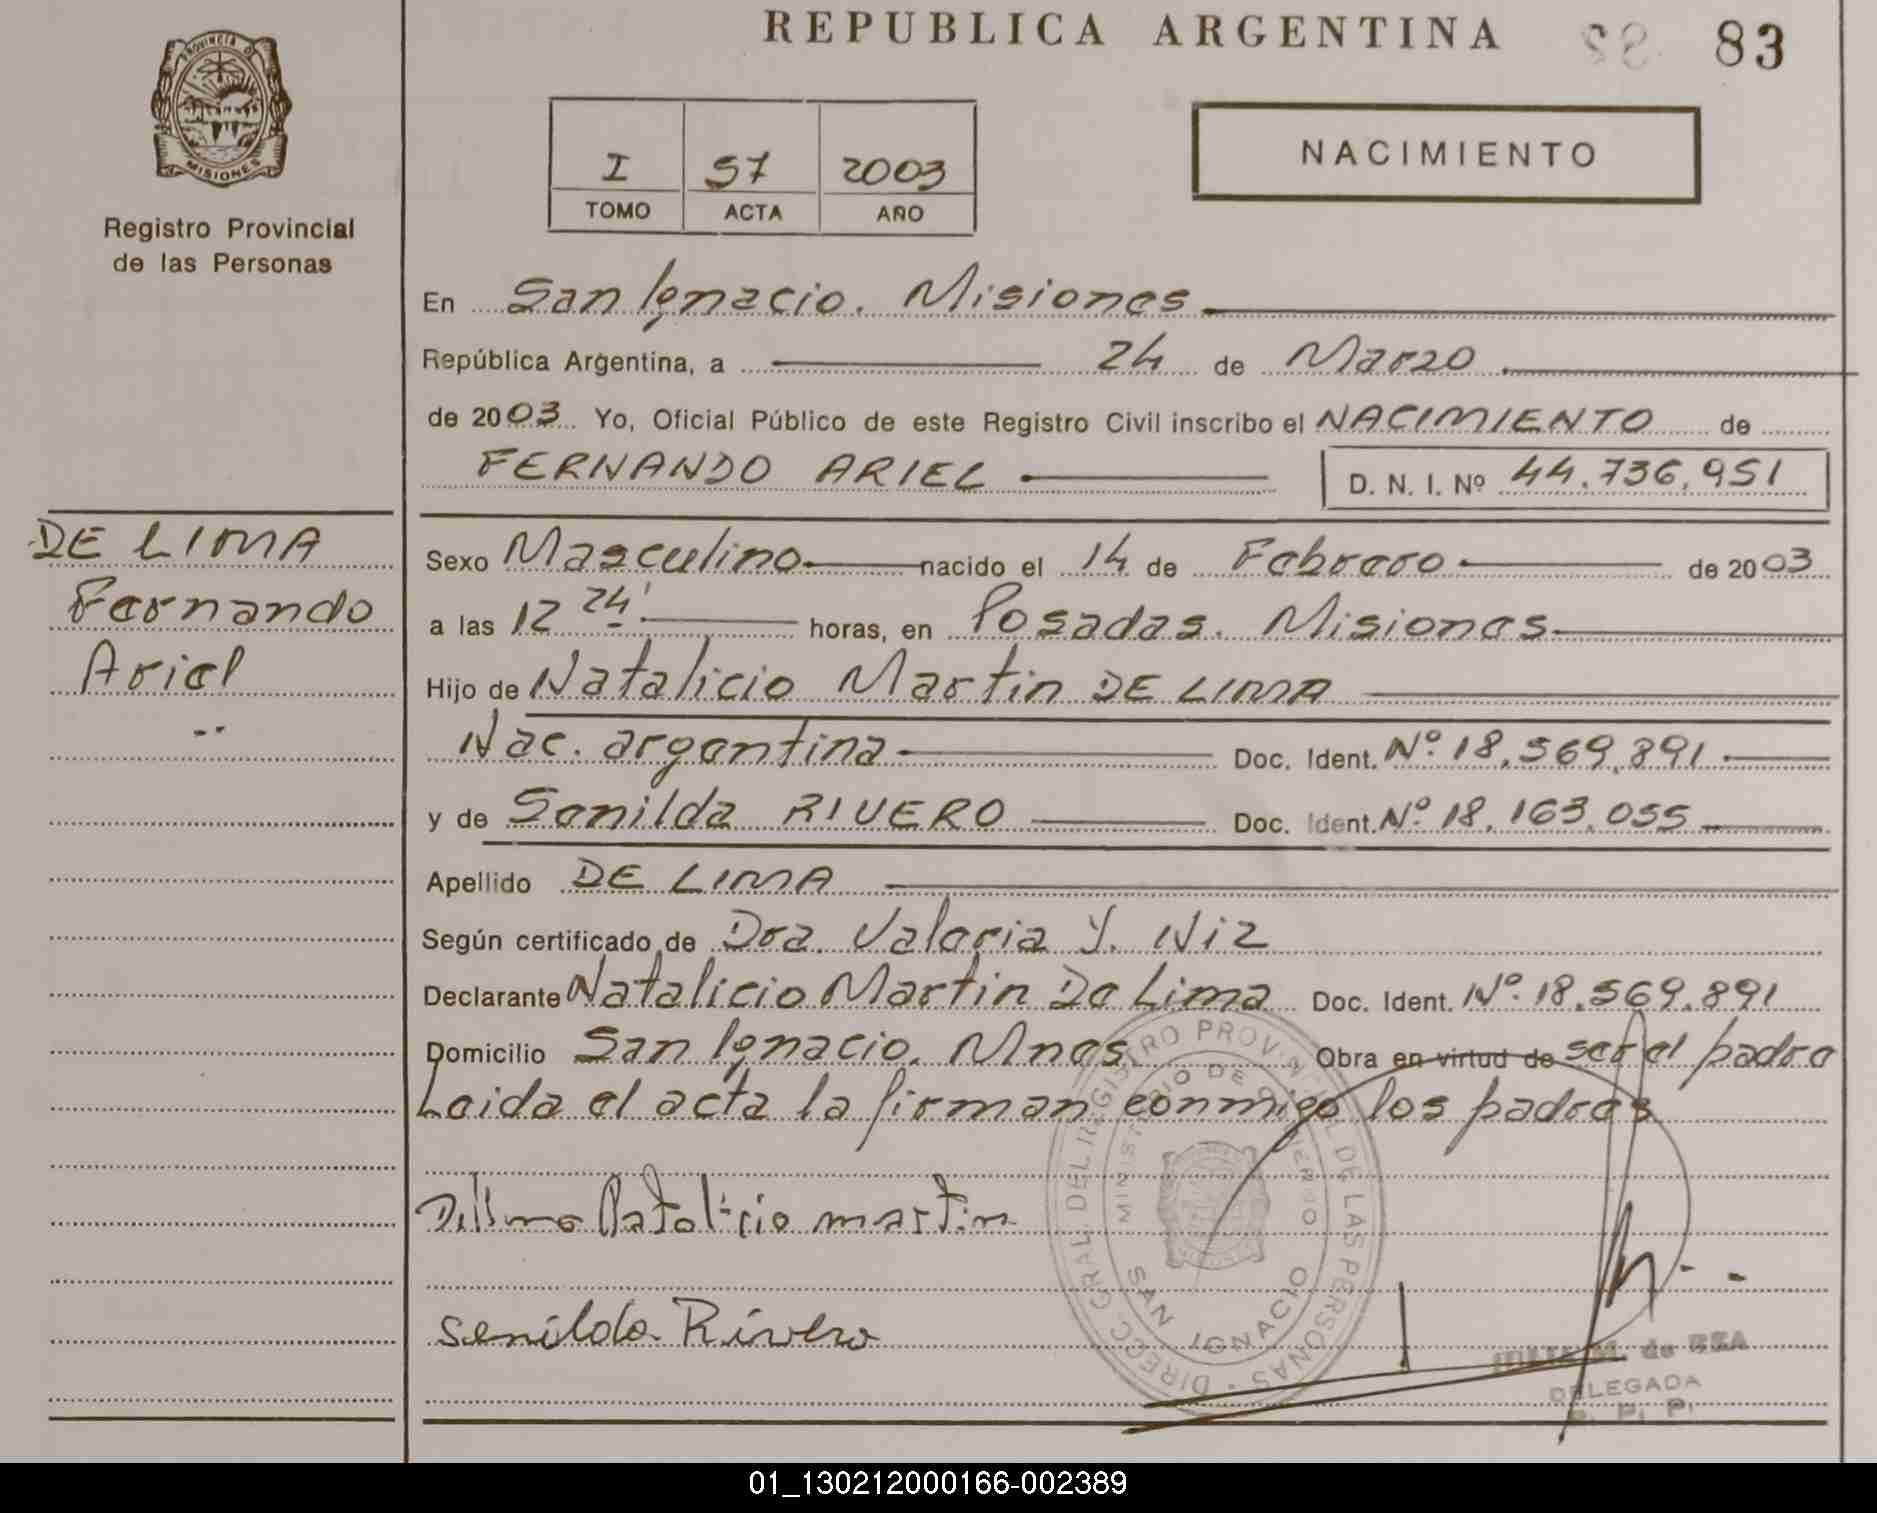 REPUBLICA ARGENTINA
83
PROVINCIA D
MISIONES
Registro Provincial
de las Personas
I 57 2003
TOMO ACTA AÑO
NACIMIENTO
En San Ignacio. Misiones
República Argentina, a 24 de Marzo
de 2003 Yo, Oficial Público de este Registro Civil inscribo el NACIMIENTO de
FERNANDO ARIEL D. N. I. Nº 44.736.951
DE LIMA
Fernando
Ariel
Sexo Masculino nacido el 14 de Febrero de 2003
a las 12 24' horas, en Posadas. Misiones
Hijo de Natalicio Martin DE LIMA
Nac. argentina Doc. Ident. Nº 18.569.891
y de Senilda RIVERO Doc. Ident. Nº 18.163.055
Apellido DE LIMA
Según certificado de Dra. Valeria Y. Niz
Declarante Natalicio Martin De Lima Doc. Ident. Nº 18.569.891
Domicilio San Ignacio. Mnes. Obra en virtud de ser el padre
Leida el acta la firman conmigo los padres
Natalicio martin
Senilda Rivero
DIREC. GRAL. DEL REGISTRO PROVINCIAL DE LAS PERSONAS
MINISTERIO DE GOBIERNO
SAN IGNACIO
M. de
DELEGADA
R. P. P.
01_130212000166-002389